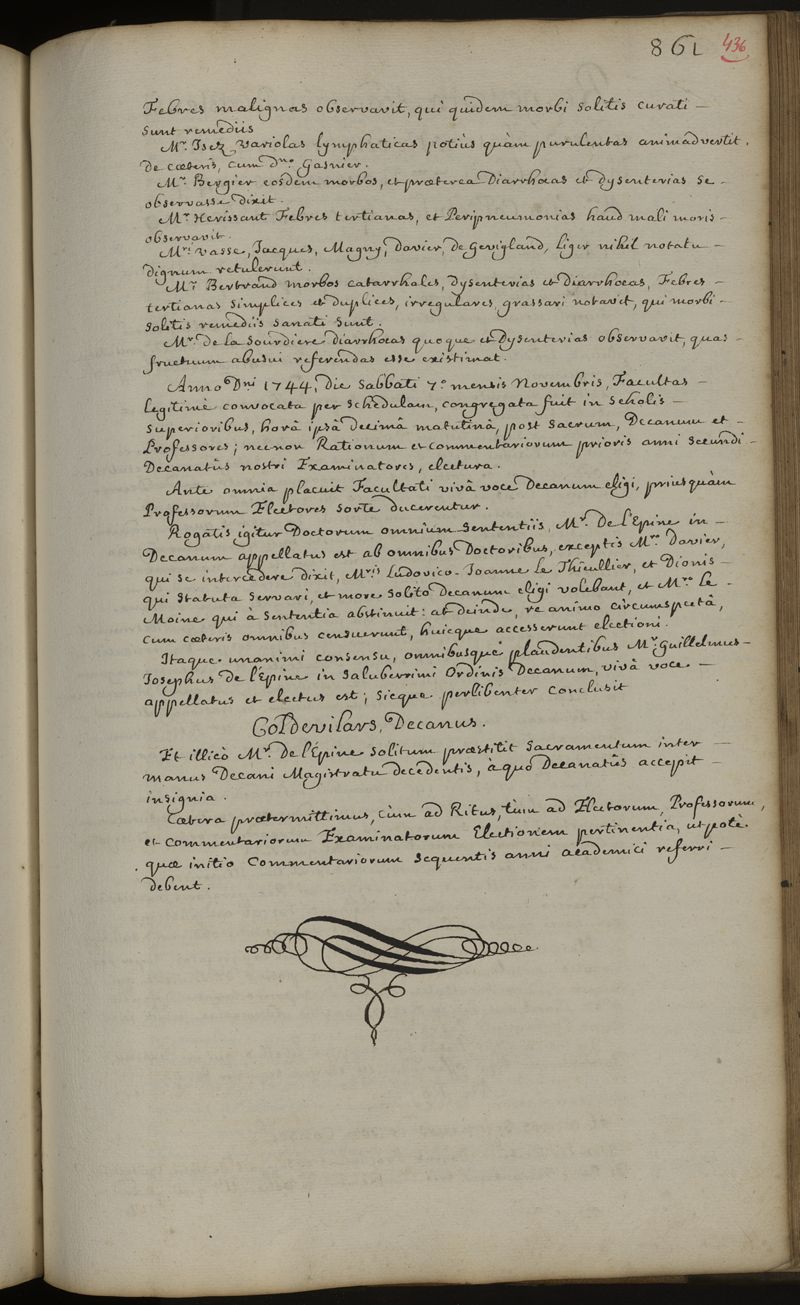 861 436
Febres malignas observavit, qui quidem morbi solitis curati –
sunt remediis
Mr. Isez variolas lymphaticas potiùs quàm purulentas animadvertit.
De cæteris, cum Dno. Gasnier.
Mr. Bergier eosdem morbos, et præterea Diarrhœas et dysenterias se –
observasse dixit.
Mr. Herissant Febres tertianas, et Peripneumonias haud mali moris –
observavit.
Mri. Vasse, Jacques, Magny, Davier, de Gevigland, Liger nihil notatu –
Dignum retulerunt.
Mr. Bertrand morbos catarrhales, Dysenterias et Diarrhœas, Febres –
tertianas simplices et duplices, irregulares grassari notavit, qui morbi –
solitis remediis sanati sunt.
Mr. de la Sourdiere diarrhœas quoque et Dysenterias observavit, quas –
fructuum abusui referendas esse existimat.
Anno Dni 1744, die Sabbati 7o. mensis Novembris, Facultas –
legitimè convocata per schedulam, congregata fuit in Scholis –
superioribus, horâ ipsâ decimâ matutinâ, post Sacrum, Decanum et –
Professores; necnon Rationum et commentariorum prioris anni secundi –
Decanatûs nostri Examinatores, electura.
Ante omnia placuit Facultati vivâ voce Decanum eligi, priusquàm
Professorum Electores sorte ducerentur.
Rogatis igitur Doctorum omnium sententiis, Mr. De l'Epine in –
Decanum appellatus est ab omnibus Doctoribus, exceptis Mro. Davier,
qui se intercedere dixit, Mris Ludovico-Joanne Le Thieullier, et Dionis –
qui statuta servari, et more solito Decanum eligi volebant, et Mro. Le –
Moine qui à sententia abstinuit: at deinde, re animo circumspectâ,
cum cæteris omnibus censuerunt, huicque accesserunt electioni.
Itaque unanimi consensu, omnibusque plaudentibus Mr. Guillelmus –
Josephus De l'Epine in saluberrimi Ordinis Decanum, vivâ voce –
appellatus et electus est; sicque perlibenter conclusit
Col De Vilars, Decanus.
Et illicò Mr. De l'Epine solitum præstitit Sacramentum inter –
manus Decani Magistratu decedentis, à quo Decanatûs accepit –
insignia.
Cætera prætermittimus, cùm ad Ritus, tùm ad Electorum, Professorum,
et commentariorum Examinatorum Electionem pertinentia, utpotè
quæ initio Commentariorum sequentis anni academici referri –
debent.